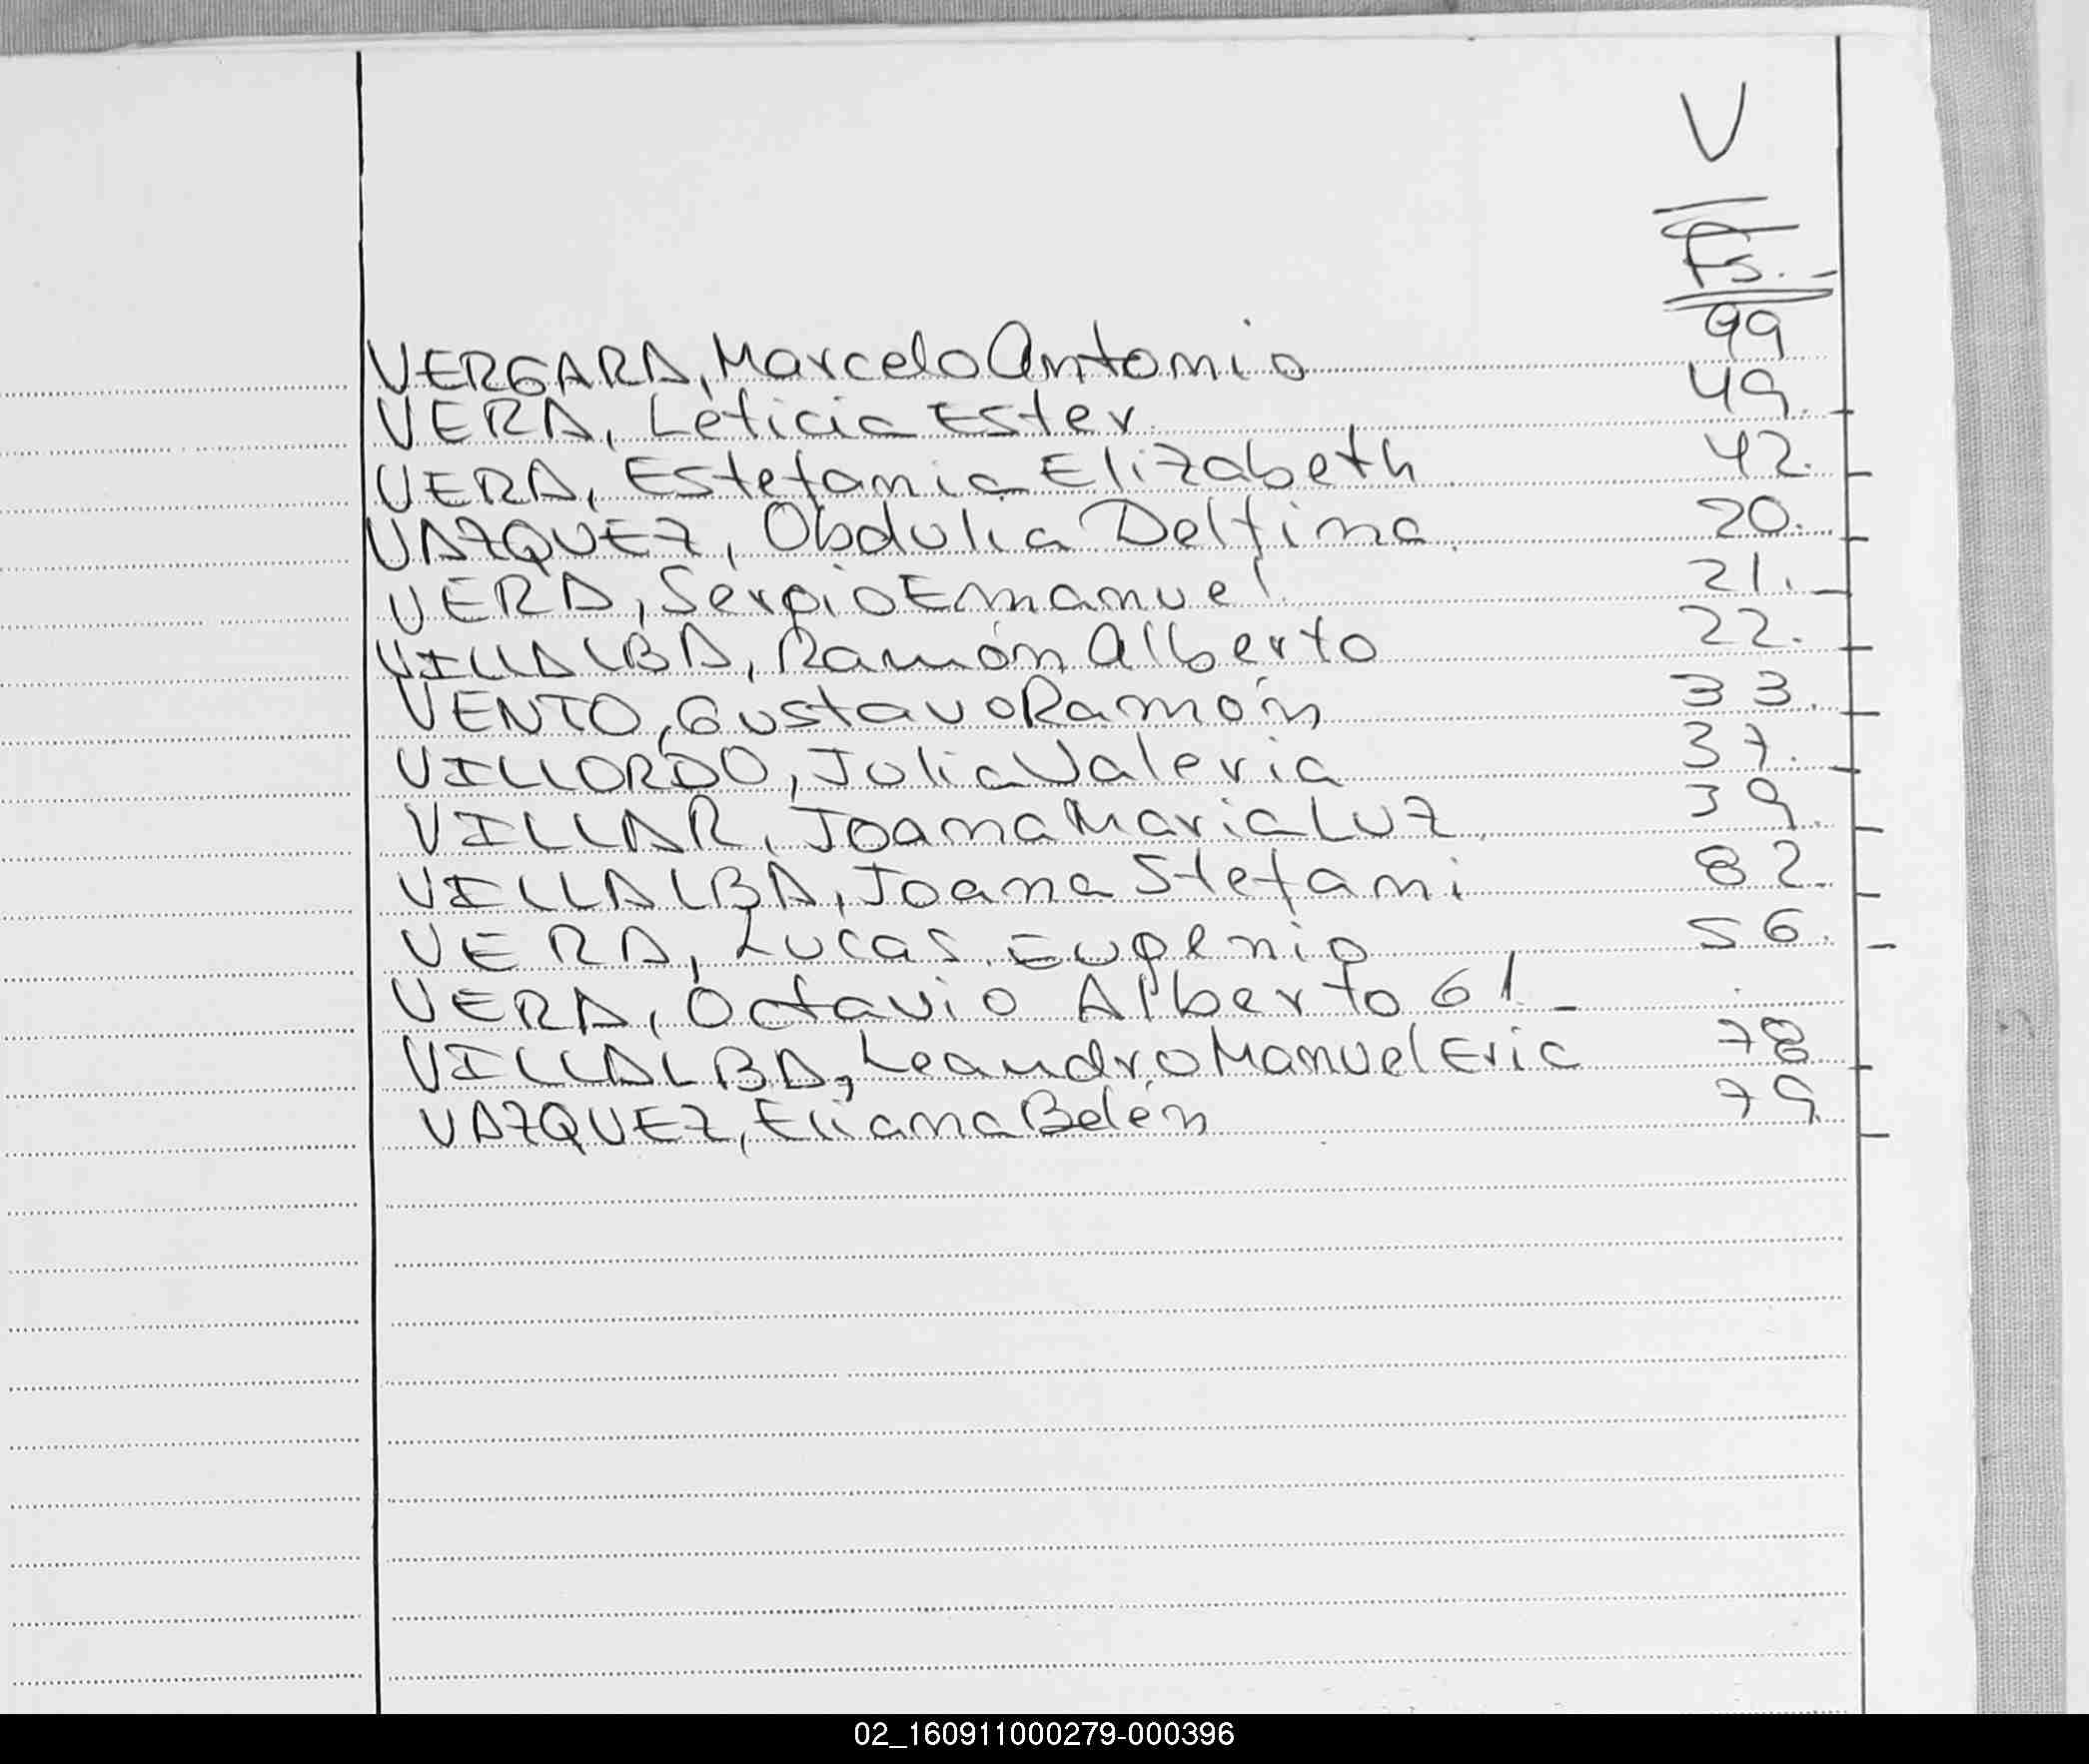 V
Fs.-
VERGARA, Marcelo Antonio 99
VERA, Leticia Ester 49.-
VERA, Estefania Elizabeth 42.-
VAZQUEZ, Obdulia Delfina. 20.-
VERA, Sergio Emanuel 21.-
VILLALBA, Ramón Alberto 22.-
VENTO, Gustavo Ramón 33.-
VILLORDO, Julia Valeria 37.-
VILLAR, Joana Maria Luz 39.-
VILLALBA, Joana Stefani 82.-
VERA, Lucas Eugenio 56.-
VERA, Octavio Alberto 61.-
VILLALBA, Leandro Manuel Eric 78.-
VAZQUEZ, Eliana Belén 79.-
02_160911000279-000396